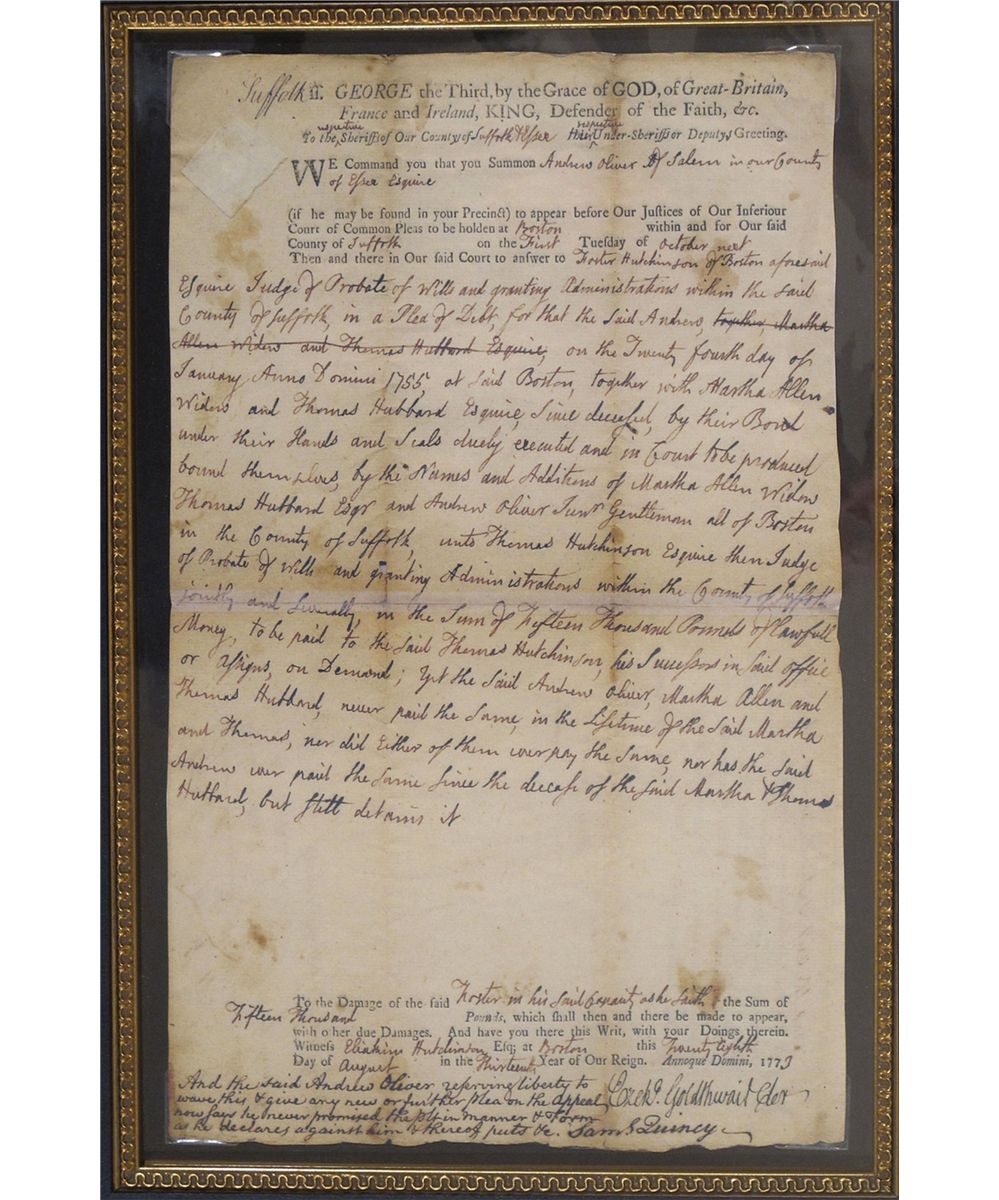 Suffolk ss. GEORGE the Third, by the Grace of GOD, of Great-Britain,
France and Ireland, KING, Defender of the Faith, &c.
respective respective
To the Sheriffs of Our County of Suffolk & Essex their Under-Sheriffs or Deputys Greeting.
WE Command you that you Summon Andrew Oliver of Salem in our County
of Essex Esquire
(if he may be found in your Precinct) to appear before Our Justices of Our Inferiour
Court of Common Pleas to be holden at Boston within and for Our said
County of Suffolk on the First Tuesday of October next
Then and there in Our said Court to answer to Foster Hutchinson of Boston aforesaid
Esquire Judge of Probate of Wills and granting Administrations within the said
County of Suffolk, in a Plea of Debt, for that the said Andrew, together, Martha
Allen Widow and Thomas Hubbard Esquire, on the Twenty fourth day of
January Anno Domini 1755, at said Boston, together with Martha Allen
Widow and Thomas Hubbard Esquire, since deceased, by their Bond
under their Hands and Seals duely executed and in Court to be produced
bound themselves, by the Names and Additions of Martha Allen Widow
Thomas Hubbard Esqr and Andrew Oliver Junr Gentleman all of Boston
in the County of Suffolk, unto Thomas Hutchinson Esquire then Judge
of Probate of Wills and granting Administrations within the County of Suffolk
jointly and severally, in the Sum of Fifteen Thousand Pounds of lawfull
Money, to be paid to the said Thomas Hutchinson, his Successors in said office
or assigns, on Demand; Yet the said Andrew Oliver, Martha Allen and
Thomas Hubbard, never paid the same, in the Lifetime of the said Martha
and Thomas, nor did Either of them ever pay the same, nor has the said
Andrew ever paid the same since the decease of the said Martha & Thomas
Hubbard, but still detains it
To the Damage of the said Foster in his said Capacity as he saith the Sum of
Fifteen Thousand Pounds, which shall then and there be made to appear,
with other due Damages. And have you there this Writ, with your Doings therein.
Witness Eliakim Hutchinson Esq; at Boston this Twenty Eighth
Day of August in the Thirteenth Year of Our Reign. Annoque Domini, 1773
Ezekl. Goldthwait Cler
And the said Andrew Oliver reserving liberty to
wave this & give any new or further plea on the appeal
now says he never promised the plt in manner & form
as he declares against him & thereof puts &c. Saml Quincy